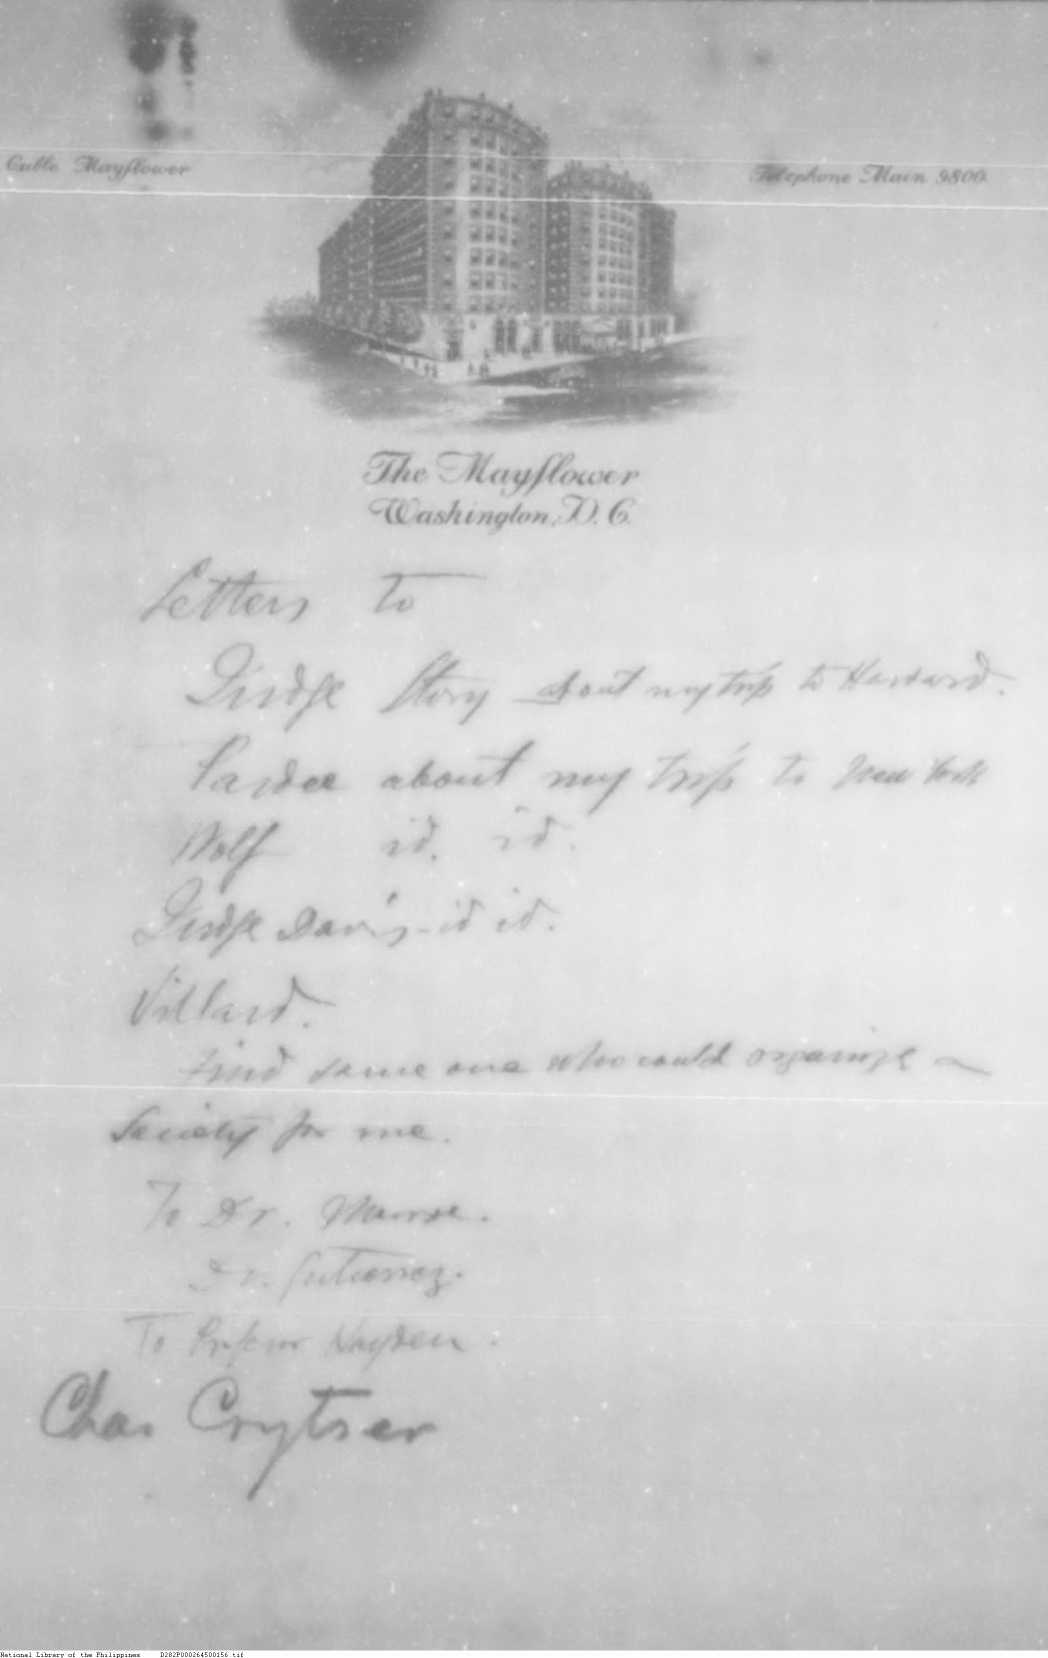 Cable Mayflower
Telephone Main 9800.
The Mayflower
Washington, D. C.
Letters to
Judge Story about my trip to Harvard.
Pardee about my trip to New York
Wolf id. id.
Judge Davis - id id.
Villard.
Find some one who could organize a
Society for me.
To Dr. Munroe.
Dr. Gutierrez.
To Professor Hayden.
Chas Crytser
National Library of the Philippines D282P000264500156.tif